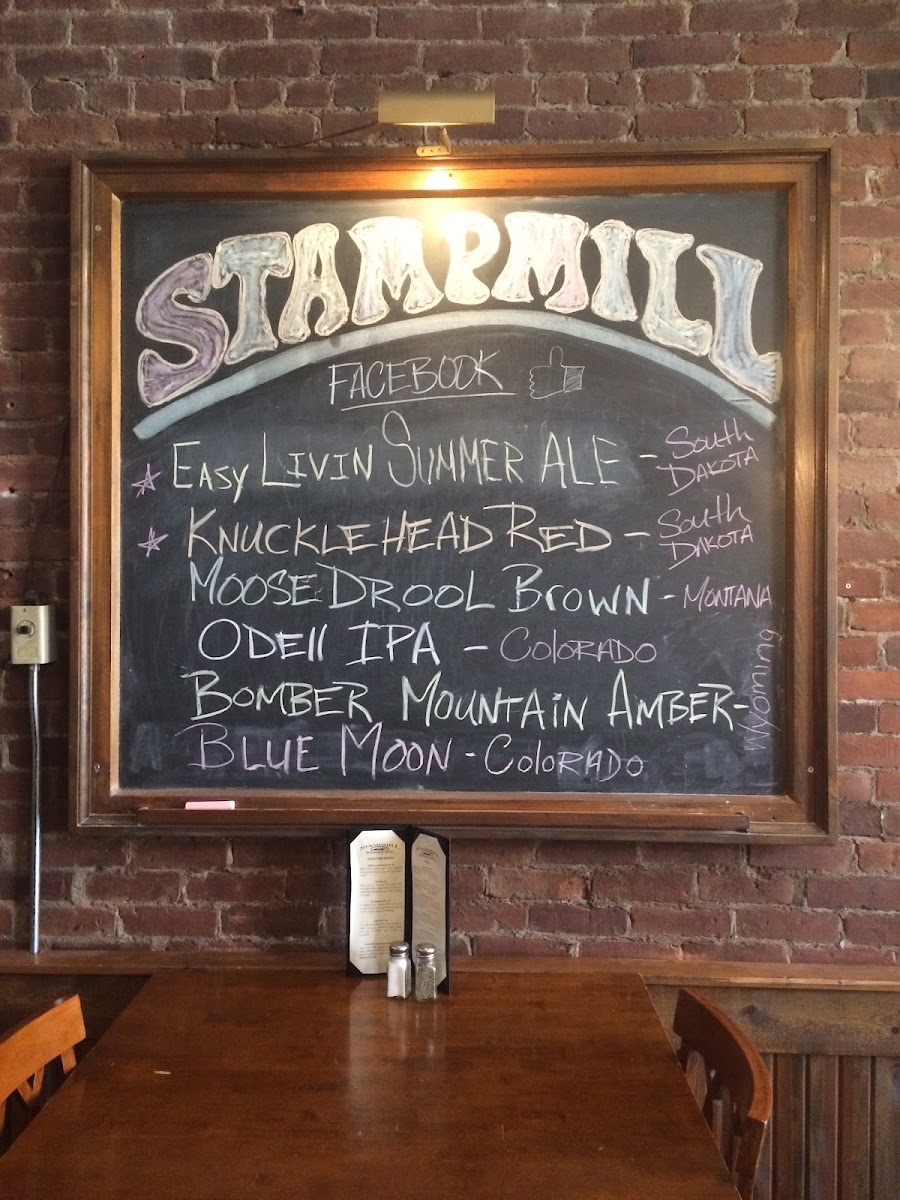 STAMPMILL
FACEBOOK
EASY LIVIN SUMMER ALE - SOUTH DAKOTA
KNUCKLEHEAD RED - SOUTH DAKOTA
MOOSE DROOL BROWN - MONTANA
ODELL IPA - COLORADO
BOMBER MOUNTAIN AMBER - WYOMING
BLUE MOON - COLORADO